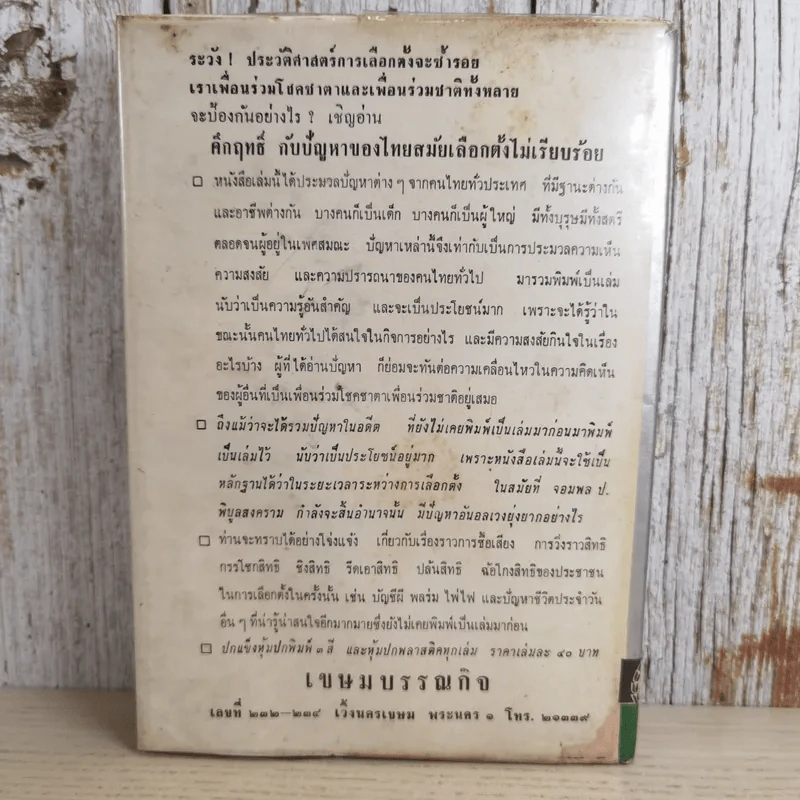 ระวัง ! ประวัติศาสตร์การเลือกตั้งจะซ้ำรอย
เราเพื่อนร่วมโชคชาตาและเพื่อนร่วมชาติทั้งหลาย
จะป้องกันอย่างไร ? เชิญอ่าน
คึกฤทธิ์ กับปัญหาของไทยสมัยเลือกตั้งไม่เรียบร้อย
□ หนังสือเล่มนี้ได้ประมวลปัญหาต่าง ๆ จากคนไทยทั่วประเทศ ที่มีฐานะต่างกัน
และอาชีพต่างกัน บางคนก็เป็นเด็ก บางคนก็เป็นผู้ใหญ่ มีทั้งบุรุษมีทั้งสตรี
ตลอดจนผู้อยู่ในเพศสมณะ ปัญหาเหล่านี้จึงเท่ากับเป็นการประมวลความเห็น
ความสงสัย และความปรารถนาของคนไทยทั่วไป มารวมพิมพ์เป็นเล่ม
นับว่าเป็นความรู้อันสำคัญ และจะเป็นประโยชน์มาก เพราะจะได้รู้ว่าใน
ขณะนั้นคนไทยทั่วไปได้สนใจในกิจการอย่างไร และมีความสงสัยกินใจในเรื่อง
อะไรบ้าง ผู้ที่ได้อ่านปัญหา ก็ย่อมจะทันต่อความเคลื่อนไหวในความคิดเห็น
ของผู้อื่นที่เป็นเพื่อนร่วมโชคชาตาเพื่อนร่วมชาติอยู่เสมอ
□ ถึงแม้ว่าจะได้รวมปัญหาในอดีต ที่ยังไม่เคยพิมพ์เป็นเล่มมาก่อนมาพิมพ์
เป็นเล่มไว้ นับว่าเป็นประโยชน์อยู่มาก เพราะหนังสือเล่มนี้จะใช้เป็น
หลักฐานได้ว่าในระยะเวลาระหว่างการเลือกตั้ง ในสมัยที่ จอมพล ป.
พิบูลสงคราม กำลังจะสิ้นอำนาจนั้น มีปัญหาอันอลเวงยุ่งยากอย่างไร
□ ท่านจะทราบได้อย่างโจ่งแจ้ง เกี่ยวกับเรื่องราวการซื้อเสียง การวิ่งราวสิทธิ
กรรโชกสิทธิ ชิงสิทธิ รีดเอาสิทธิ ปล้นสิทธิ ฉ้อโกงสิทธิของประชาชน
ในการเลือกตั้งในครั้งนั้น เช่น บัญชีผี พลร่ม ไพ่ไฟ และปัญหาชีวิตประจำวัน
อื่น ๆ ที่น่ารู้น่าสนใจอีกมากมายซึ่งยังไม่เคยพิมพ์เป็นเล่มมาก่อน
□ ปกแข็งหุ้มปกพิมพ์ ๓ สี และหุ้มปกพลาสติคทุกเล่ม ราคาเล่มละ ๔๐ บาท
เขษมบรรณกิจ
เลขที่ ๒๓๒—๒๓๔ เวิ้งนครเขษม พระนคร ๑ โทร. ๒๑๓๓๙